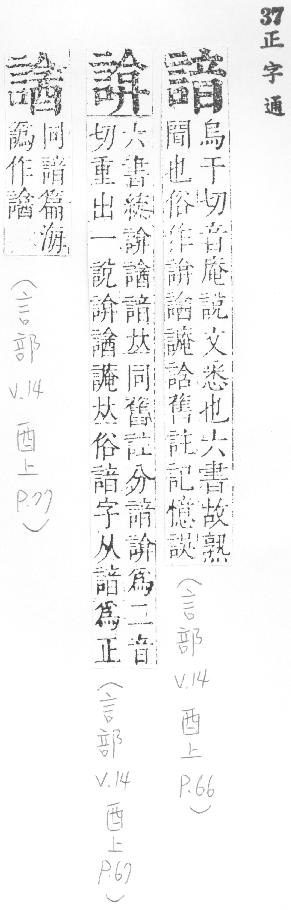 37正字通
諳
烏干切音庵說文悉也六書故熟
聞也俗作誁䜡諵誝舊註記憶誤
誁
六書統誁䜡諳𠀤同舊註分諳誁為二音
切重出一說誁䜡䛳𠀤俗諳字从諳為正
同諳篇海
譌作
(言部 v.14 酉上 P.66)
(言部 v.14 酉上 P.67)
(言部 v.14 酉上 P.77)